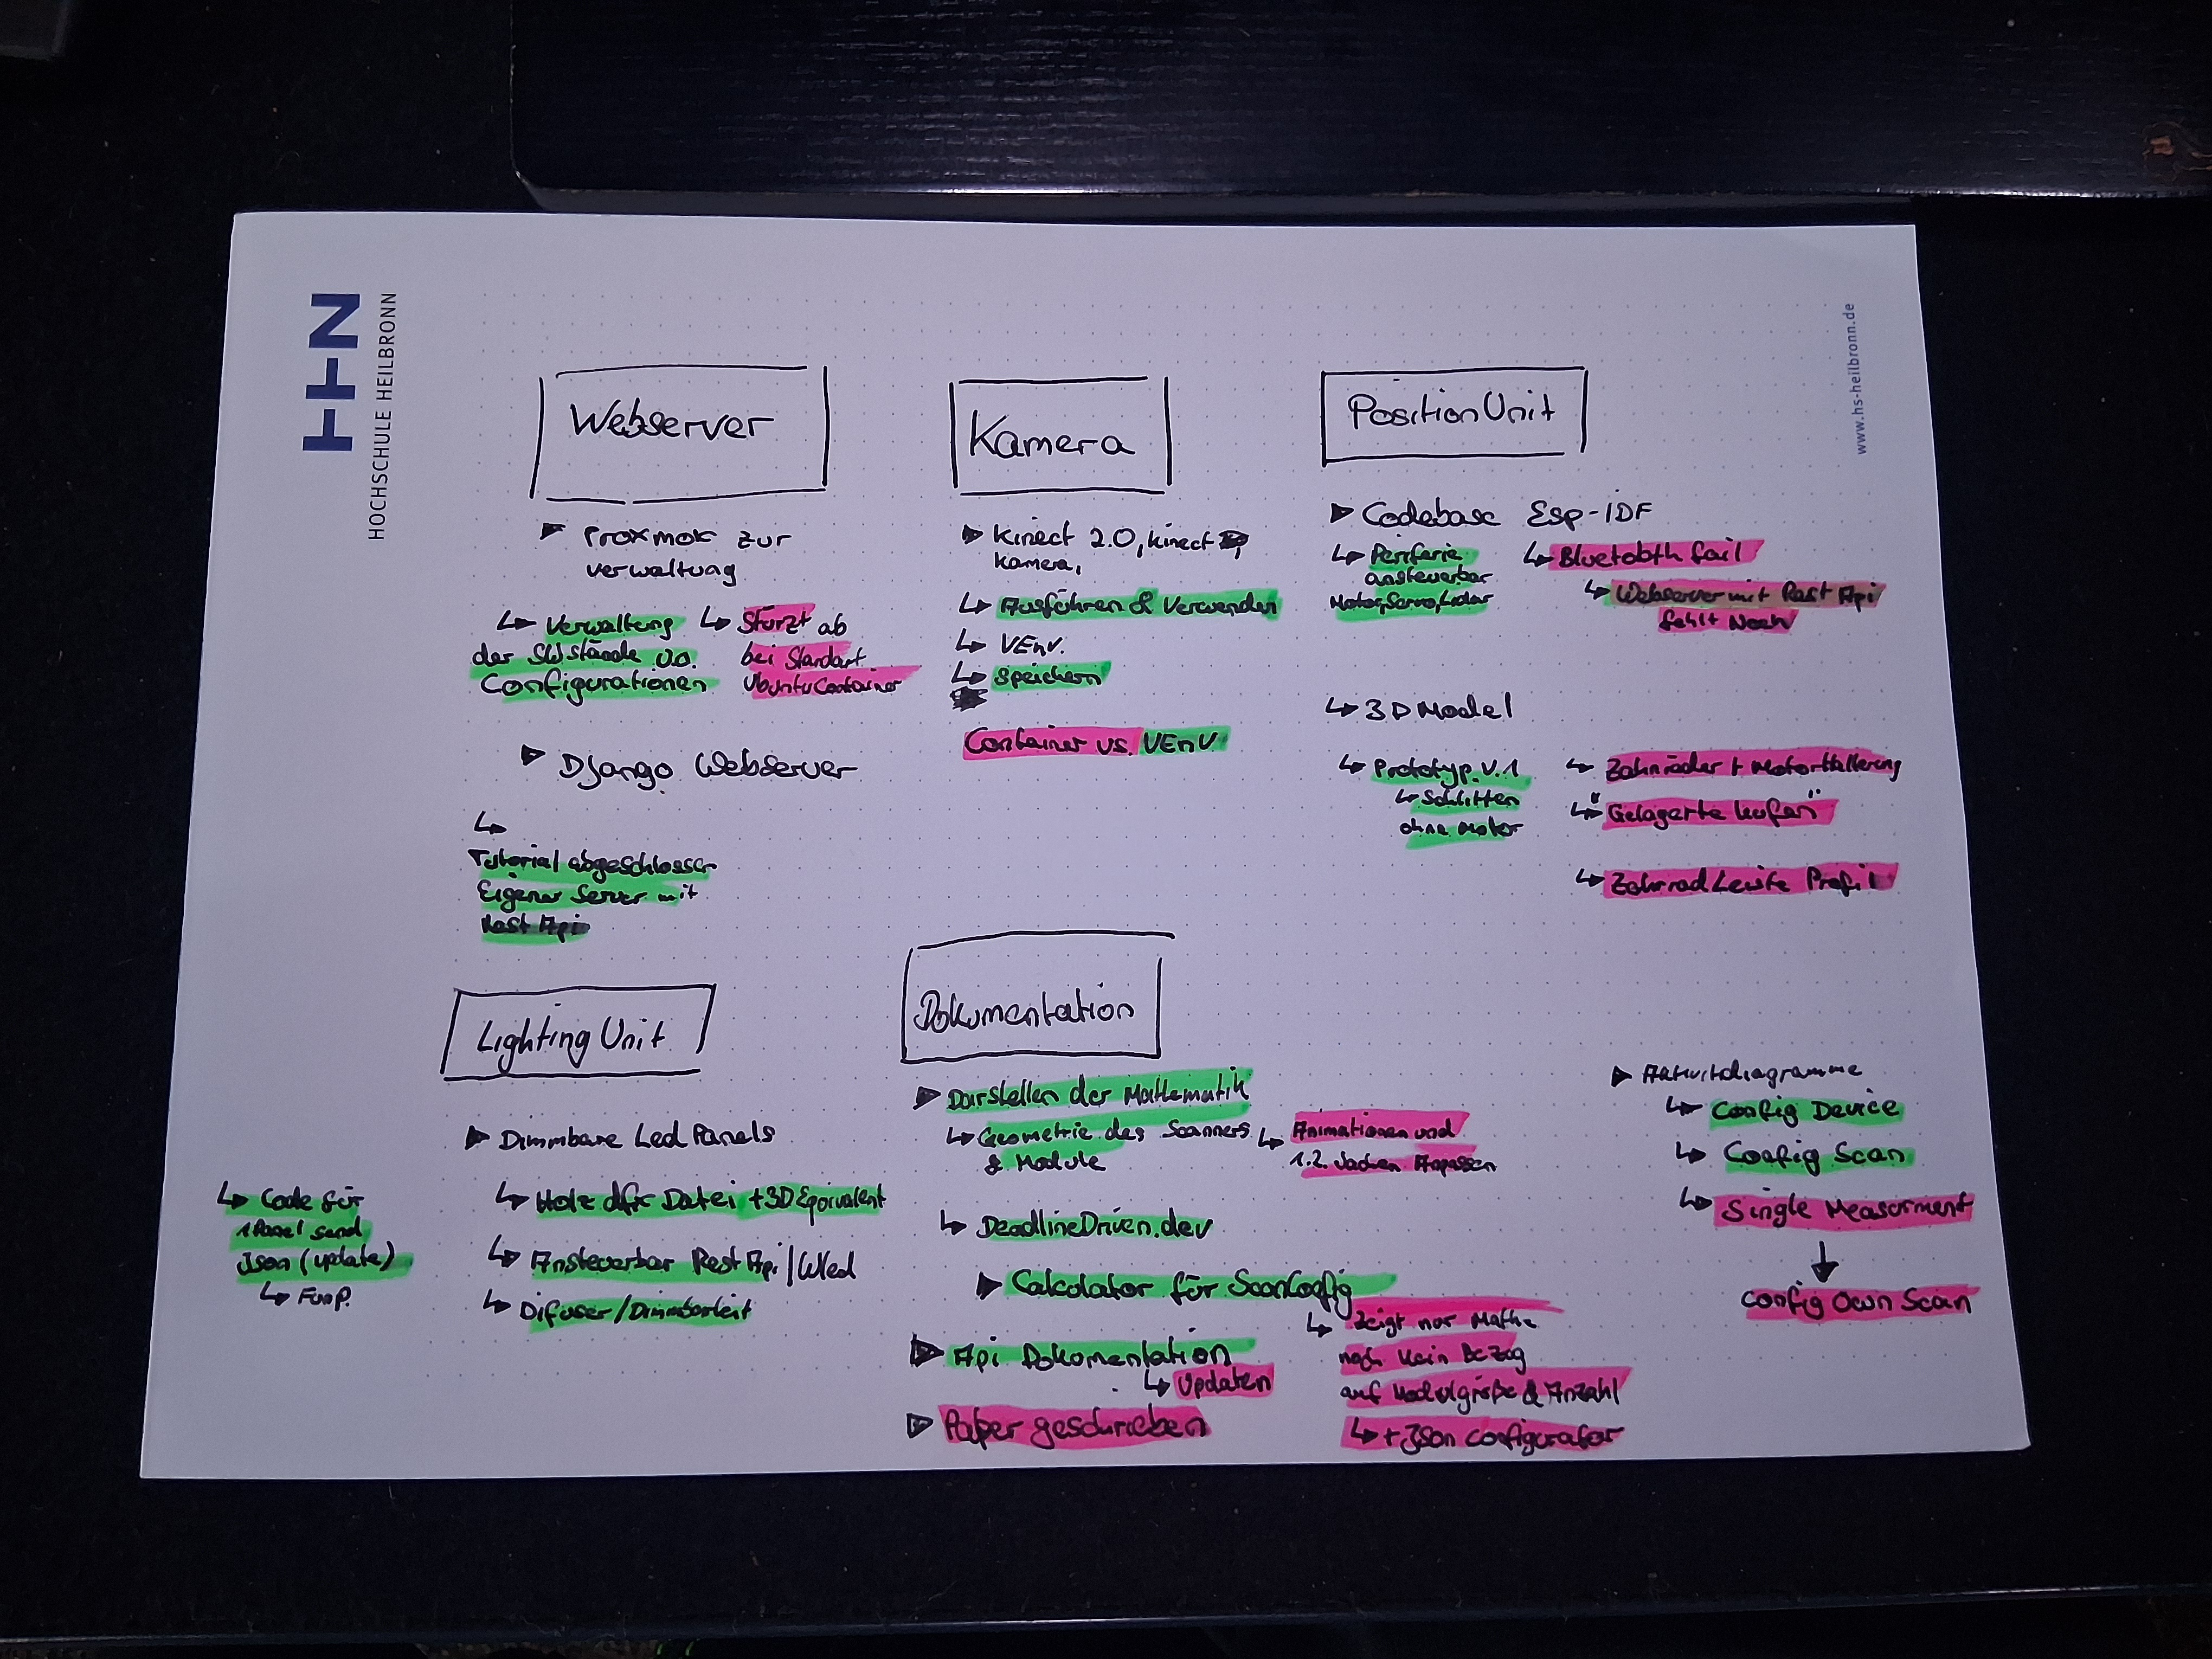 HHN
HOCHSCHULE HEILBRONN
www.hs-heilbronn.de
Webserver
Proxmox zur
verwaltung
Verwaltung
der SW stände u.o.
Configurationen
Stürzt ab
bei Standart
Ubuntu Container
Django Webserver
Tutorial abgeschlossen
Eigener Server mit
Rest Api
Kamera
Kinect 2.0, kinect
kamera,
Ausführen & Verwenden
VEnv.
Speichern
Container vs. VEnV
PositionUnit
Codebase Esp-IDF
Periferie
ansteuerbar
Motor, Servo, Lidar
Bluetooth fail
Webserver mit Rest Api
fehlt Noch
3D Model
Prototyp V.1
Schlitten
ohne Motor
Zahnräder + Motorhalterung
"Gelagerte kufen"
Zahnrad Leiste Profil
Lighting Unit
Dimmbare Led Panels
Code für
1 Panel send
Json (update)
Holz dfx Datei + 3D Equivalent
Ansteuerbar Rest Api | Wled
Difuser/Dimmbarkeit
Dokumentation
Darstellen der Mathematik
Geometrie des Scanners
& Module
Animationen und
1.2. Sachen Anpassen
DeadlineDriven.dev
Calculator für ScanConfig
Zeigt nur Mathe
noch kein Bezug
auf Modulgröße & Anzahl
+ Json Configurator
Api Dokumentation
Updaten
Paper geschrieben
Aktivitdiagramme
Config Device
Config Scan
Single Measurment
Config Own Scan